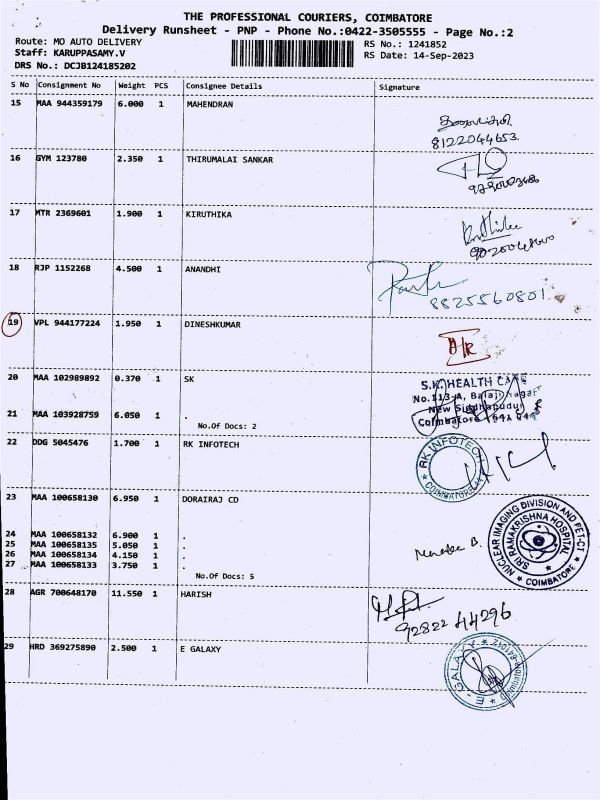 THE PROFESSIONAL COURIERS, COIMBATORE
Delivery Runsheet - PNP - Phone No.:0422-3505555 - Page No.:2
Route: MO AUTO DELIVERY
Staff: KARUPPASAMY.V
DRS No.: DCJB124185202
RS No.: 1241852
RS Date: 14-Sep-2023
S No Consignment No Weight PCS Consignee Details Signature
15 MAA 944359179 6.000 1 MAHENDRAN
8122044653
16 GYM 123780 2.350 1 THIRUMALAI SANKAR
17 MTR 2369601 1.900 1 KIRUTHIKA
18 RJP 1152268 4.500 1 ANANDHI
8825560801
19 VPL 944177224 1.950 1 DINESHKUMAR
20 MAA 102989892 0.370 1 SK
S.K. HEALTH CARE
No.113-A, Balaji nagar
New Siddhapudur
Coimbatore - 641 044
21 MAA 103928759 6.050 1 .
No.Of Docs: 2
22 DDG 5045476 1.700 1 RK INFOTECH
RK INFOTECH
COIMBATORE
23 MAA 100658130 6.950 1 DORAIRAJ CD
24 MAA 100658132 6.900 1 .
25 MAA 100658135 5.050 1 .
26 MAA 100658134 4.150 1 .
27 MAA 100658133 3.750 1 .
No.Of Docs: 5
NUCLEAR IMAGING DIVISION AND PET-CT
SRI RAMAKRISHNA HOSPITAL
COIMBATORE
28 AGR 700648170 11.550 1 HARISH
92822 44296
29 HRD 369275890 2.500 1 E GALAXY
E - GALAXY